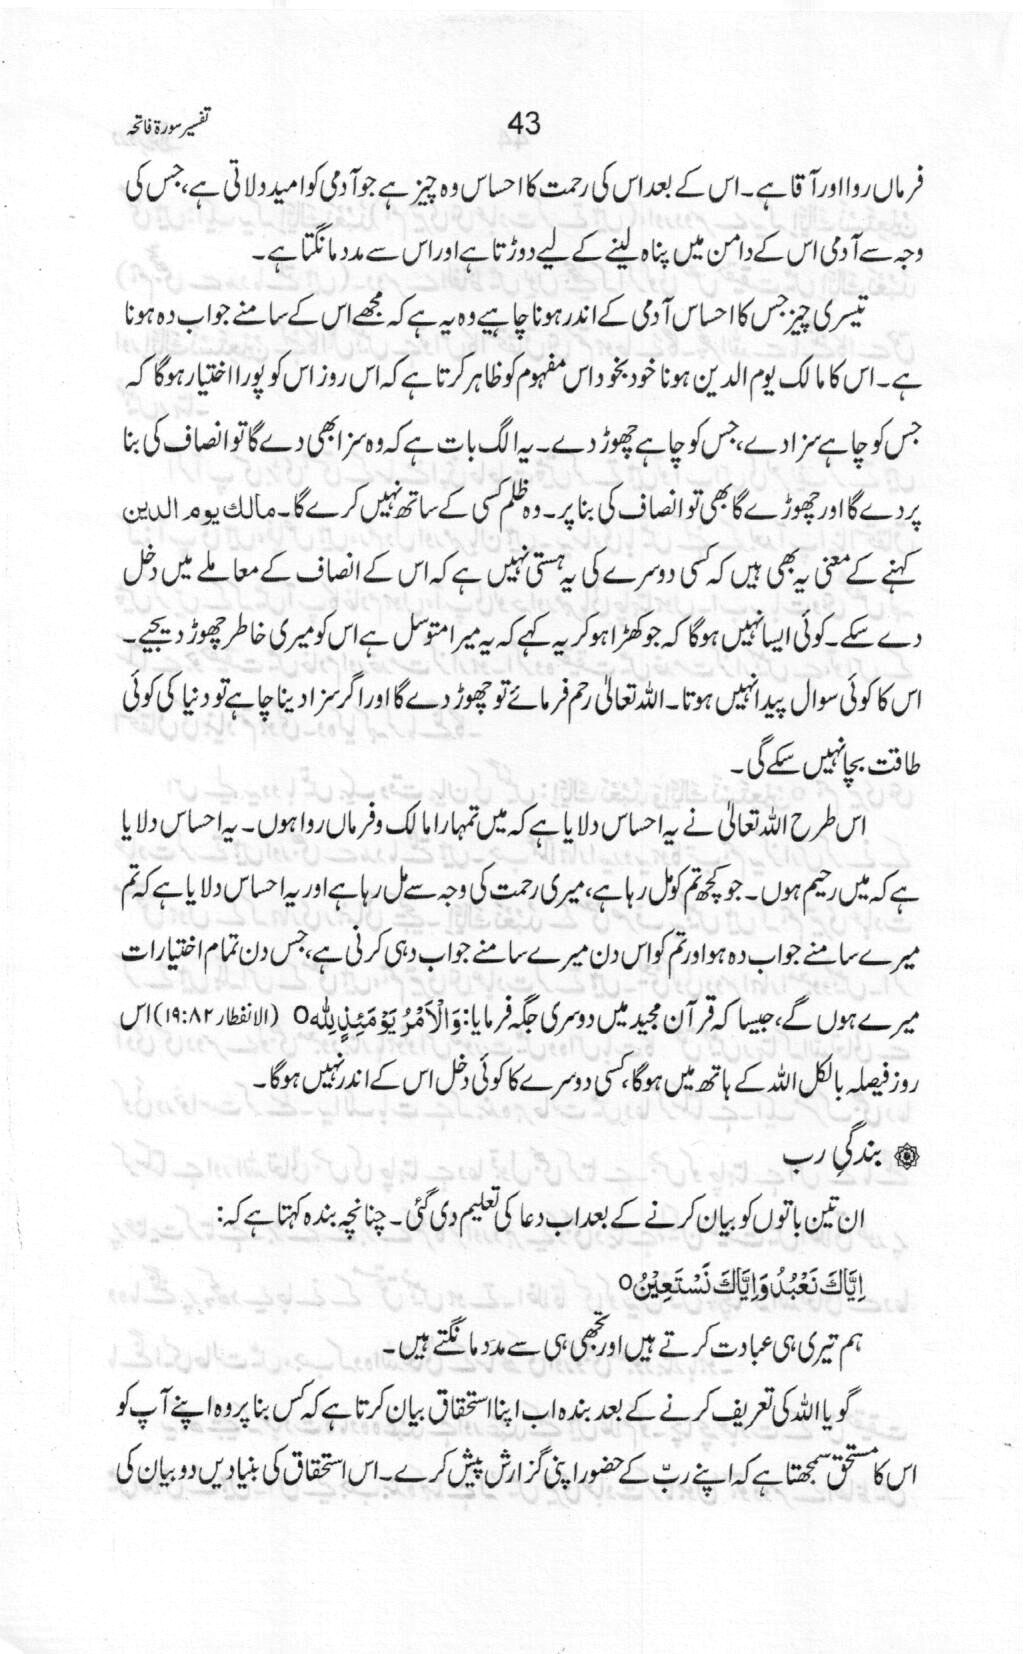 تفسیر سورۃ فاتحہ
43
فرماں روا اور آقا ہے۔ اس کے بعد اس کی رحمت کا احساس وہ چیز ہے جو آدمی کو امید دلاتی ہے، جس کی
وجہ سے آدمی اس کے دامن میں پناہ لینے کے لیے دوڑتا ہے اور اس سے مدد مانگتا ہے۔
تیسری چیز جس کا احساس آدمی کے اندر ہونا چاہیے وہ یہ ہے کہ مجھے اس کے سامنے جواب دہ ہونا
ہے۔ اس کا مالک یوم الدین ہونا خود بخود اس مفہوم کو ظاہر کرتا ہے کہ اس روز اس کو پورا اختیار ہوگا کہ
جس کو چاہے سزا دے، جس کو چاہے چھوڑ دے۔ یہ الگ بات ہے کہ وہ سزا بھی دے گا تو انصاف کی بنا
پر دے گا اور چھوڑے گا بھی تو انصاف کی بنا پر۔ وہ ظلم کسی کے ساتھ نہیں کرے گا۔ مالك يوم الدين
کہنے کے معنی یہ بھی ہیں کہ کسی دوسرے کی یہ ہستی نہیں ہے کہ اس کے انصاف کے معاملے میں دخل
دے سکے۔ کوئی ایسا نہیں ہوگا کہ جو کھڑا ہو کر یہ کہے کہ یہ میرا متوسل ہے اس کو میری خاطر چھوڑ دیجیے۔
اس کا کوئی سوال پیدا نہیں ہوتا۔ اللہ تعالیٰ رحم فرمائے تو چھوڑ دے گا اور اگر سزا دینا چاہے تو دنیا کی کوئی
طاقت بچا نہیں سکے گی۔
اس طرح اللہ تعالیٰ نے یہ احساس دلایا ہے کہ میں تمہارا مالک و فرماں روا ہوں۔ یہ احساس دلایا
ہے کہ میں رحیم ہوں۔ جو کچھ تم کو مل رہا ہے، میری رحمت کی وجہ سے مل رہا ہے اور یہ احساس دلایا ہے کہ تم
میرے سامنے جواب دہ ہو اور تم کو اس دن میرے سامنے جواب دہی کرنی ہے، جس دن تمام اختیارات
میرے ہوں گے، جیسا کہ قرآن مجید میں دوسری جگہ فرمایا: وَالْاَمْرُ يَوْمَئِذٍ لِّلّٰهِ O (الانفطار ۱۹:۸۲) اس
روز فیصلہ بالکل اللہ کے ہاتھ میں ہوگا، کسی دوسرے کا کوئی دخل اس کے اندر نہیں ہوگا۔
۞ بندگیِ رب
ان تین باتوں کو بیان کرنے کے بعد اب دعا کی تعلیم دی گئی۔ چنانچہ بندہ کہتا ہے کہ:
اِيَّاكَ نَعْبُدُ وَاِيَّاكَ نَسْتَعِيْنُ O
ہم تیری ہی عبادت کرتے ہیں اور تجھی ہی سے مدد مانگتے ہیں۔
گویا اللہ کی تعریف کرنے کے بعد بندہ اب اپنا استحقاق بیان کرتا ہے کہ کس بنا پر وہ اپنے آپ کو
اس کا مستحق سمجھتا ہے کہ اپنے ربّ کے حضور اپنی گزارش پیش کرے۔ اس استحقاق کی بنیادیں دو بیان کی